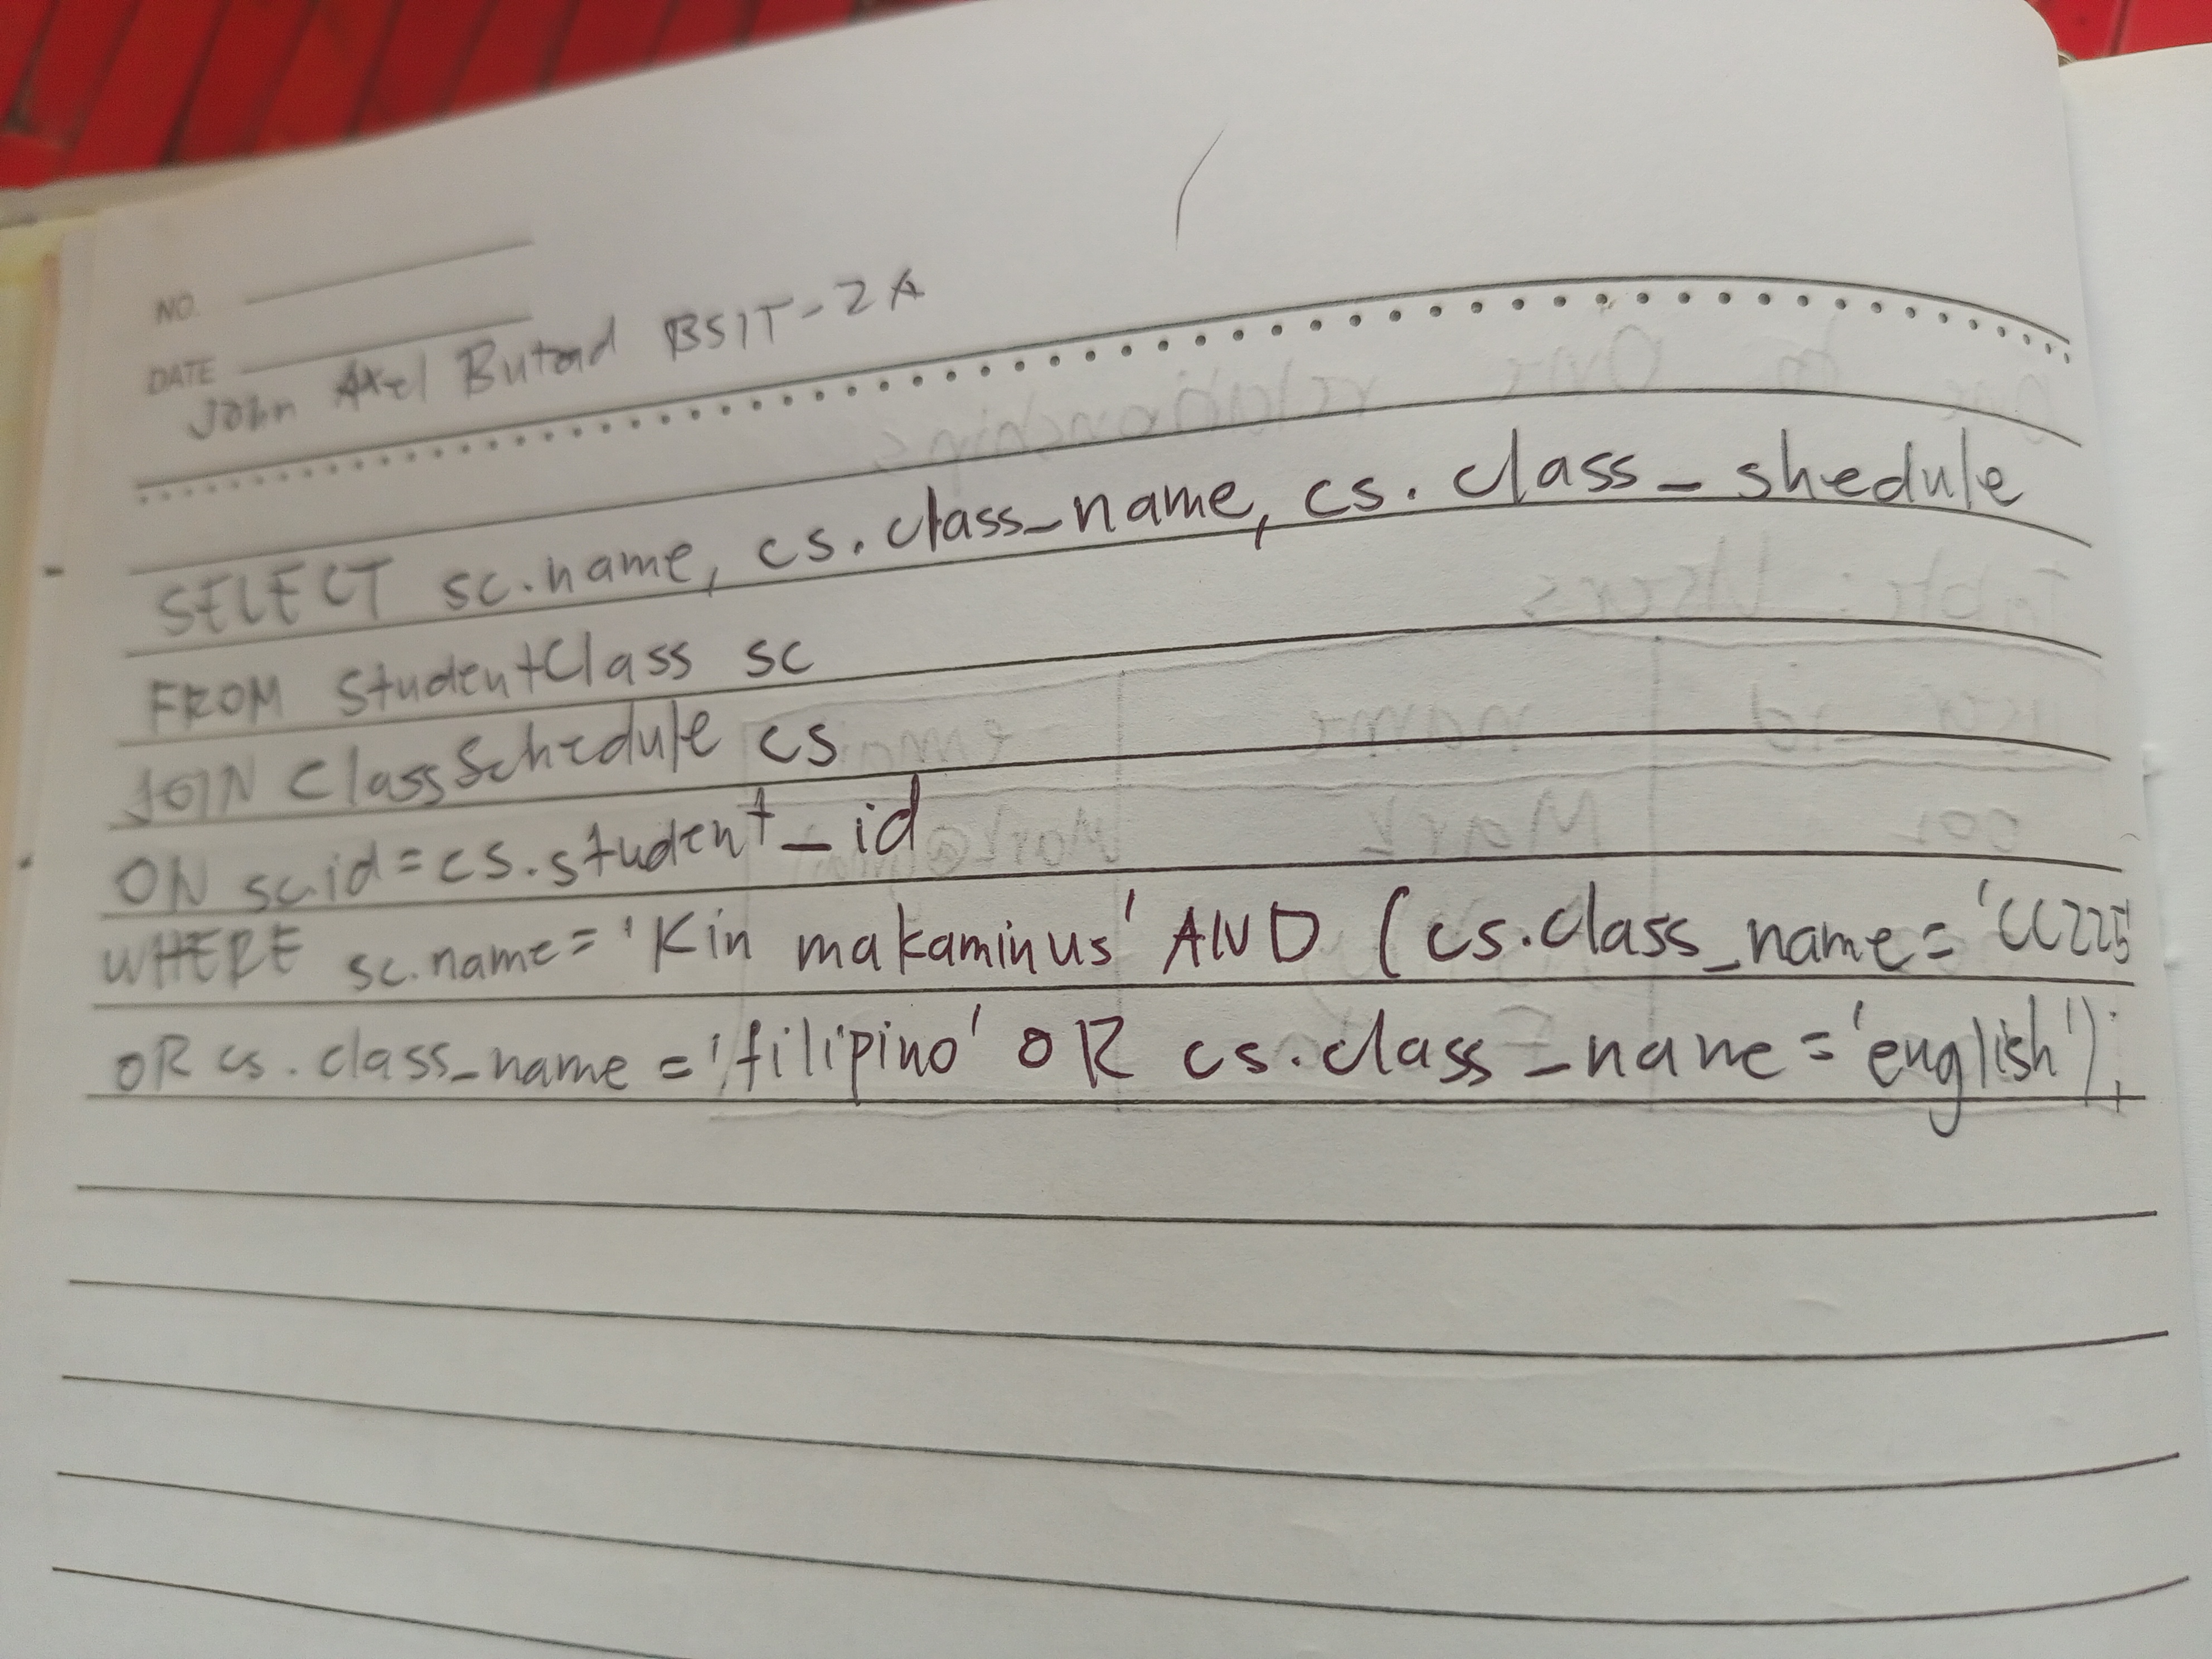 NO.
DATE
John Axel Butad BSIT-2A
SELECT sc.name, cs.class_name, cs.class_shedule
FROM StudentClass sc
JOIN ClassSchedule cs
ON sc.id=cs.student_id
WHERE sc.name='Kin makaminus' AND (cs.class_name='CC225'
OR cs.class_name='filipino' OR cs.class_name='english');